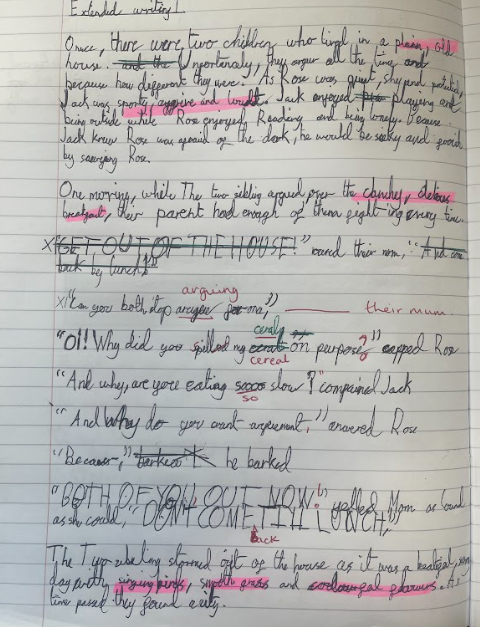 Extended writing!
Once, there were two children who lived in a plain, old
house. and the Unfortunatly, they argue all the time and
because how different they were. As Rose was quiet, shy and
Jack was sporty, and Jack enjoyed playing and
being outside while Rose enjoyed Reading and being lonely. Because
Jack knew Rose was afraid of the dark, he would be and
by scarying Rose.
One morning, while The two sibling argued over the
their parent had enough of them fight-ing every time.
X GET OUT OF THE HOUSE!" their mom, "And come
back by lunch!"
arguing
X "Can you both stop for me," their mum.
"OI! Why did you spilled my on purpose?" Rose
cereal
"And why, are you're eating slow?" complained Jack
so
"And why do you want argument," Rose
"Because," barked he barked
"BOTH OF YOU, OUT NOW!" yelled Mom as loud
as she could, "DON'T COME TILL LUNCH,"
back
The Two stormed off of the house as it was a
day with smooth grass and As
time passed they found a city.